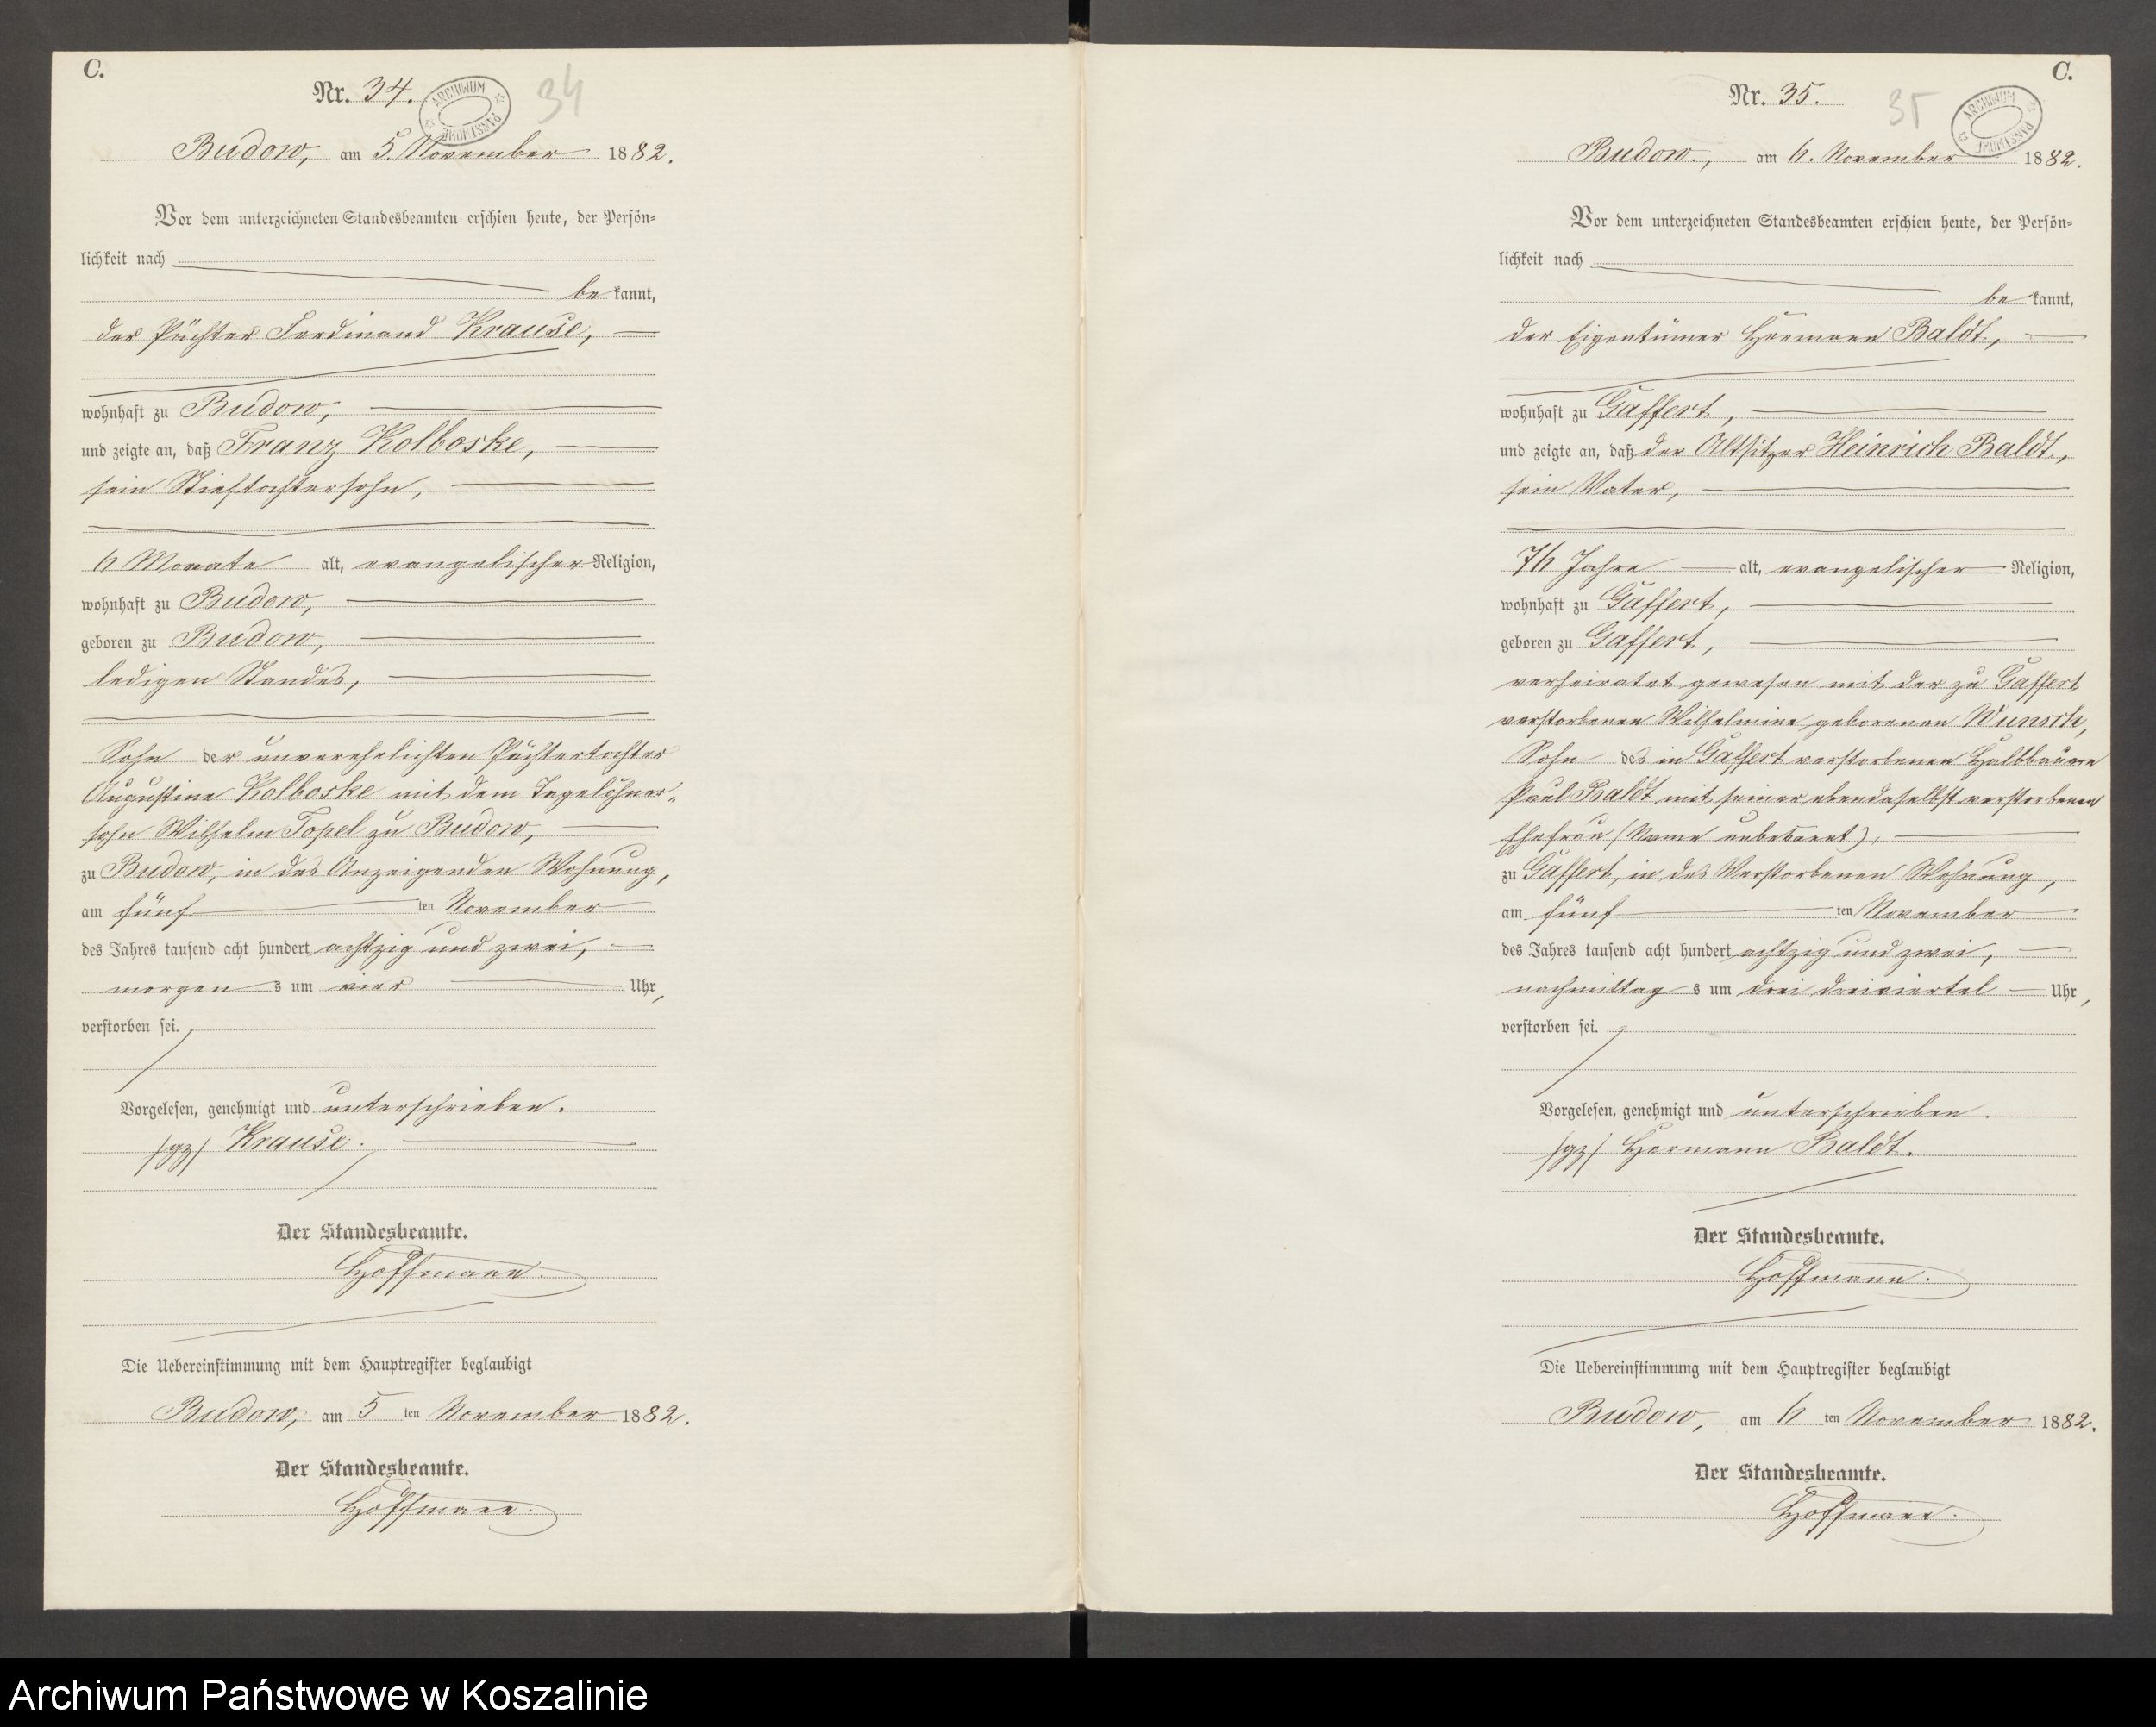 C.
Nr. 34.
34
ARCHIWUM PAŃSTWOWE
Budow, am 5. November 1882.
Vor dem unterzeichneten Standesbeamten erschien heute, der Persön=
lichkeit nach
be kannt,
der Pächter Ferdinand Krause,
wohnhaft zu Budow,
und zeigte an, daß Franz Kolboske,
sein Stieftochtersohn,
6 Monate alt, evangelischer Religion,
wohnhaft zu Budow,
geboren zu Budow,
ledigen Standes,
Sohn der unverehelichten Pächtertochter
Augustine Kolboske mit dem Tagelöhner=
sohn Wilhelm Topel zu Budow,
zu Budow, in des Anzeigenden Wohnung,
am fünf ten November
des Jahres tausend acht hundert achtzig und zwei,
morgen s um vier Uhr,
verstorben sei.
Vorgelesen, genehmigt und unterschrieben.
/gz/ Krause.
Der Standesbeamte.
Hoffmann.
Die Uebereinstimmung mit dem Hauptregister beglaubigt
Budow, am 5 ten November 1882.
Der Standesbeamte.
Hoffmann.
C.
Nr. 35.
35
ARCHIWUM PAŃSTWOWE
Budow., am 6. November 1882.
Vor dem unterzeichneten Standesbeamten erschien heute, der Persön=
lichkeit nach
be kannt,
der Eigentümer Hermann Baldt,
wohnhaft zu Gaffert,
und zeigte an, daß der Altsitzer Heinrich Baldt,
sein Vater,
76 Jahre alt, evangelischer Religion,
wohnhaft zu Gaffert,
geboren zu Gaffert,
verheiratet gewesen mit der zu Gaffert
verstorbenen Wilhelmine geborenen Wunsch,
Sohn des in Gaffert verstorbenen Halbbauern
Paul Baldt mit seiner ebendaselbst verstorbenen
Ehefrau (Name unbekannt),
zu Gaffert, in des Verstorbenen Wohnung,
am fünf ten November
des Jahres tausend acht hundert achtzig und zwei,
nachmittag s um drei dreiviertel Uhr,
verstorben sei.
Vorgelesen, genehmigt und unterschrieben.
/gz/ Hermann Baldt.
Der Standesbeamte.
Hoffmann.
Die Uebereinstimmung mit dem Hauptregister beglaubigt
Budow, am 6 ten November 1882.
Der Standesbeamte.
Hoffmann.
Archiwum Państwowe w Koszalinie